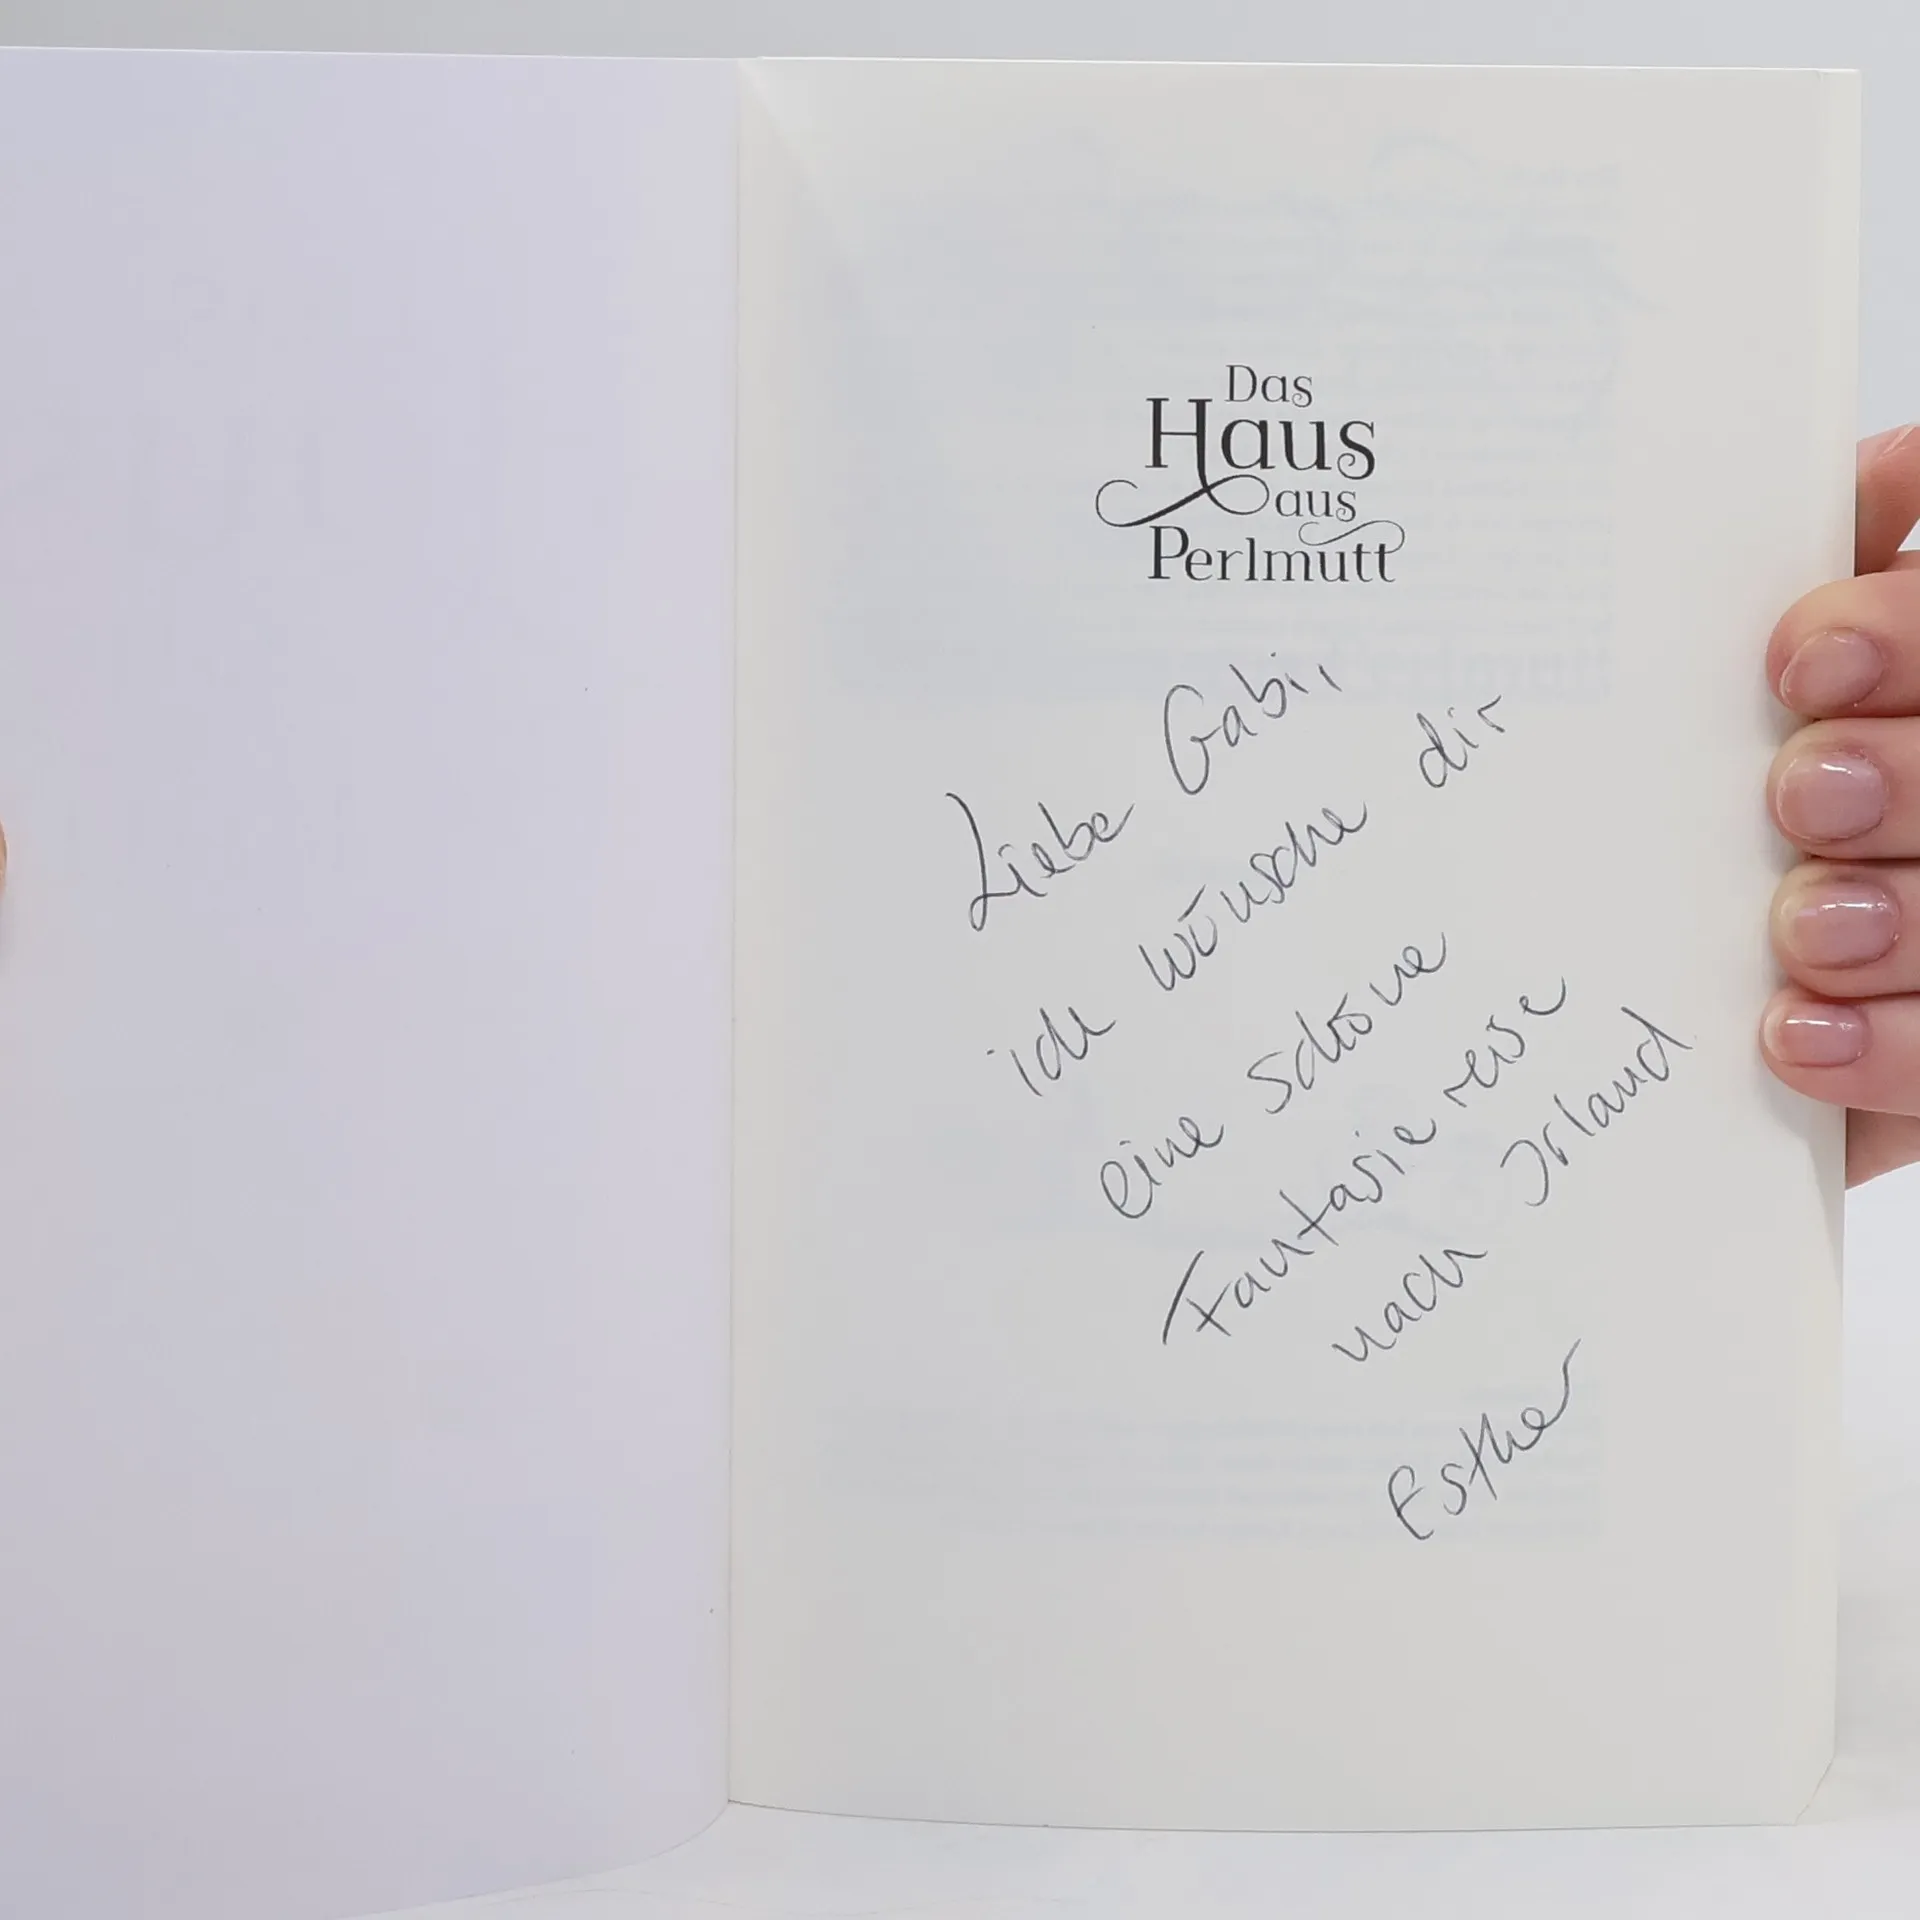 Das
Haus
aus
Perlmutt
Liebe Gabi,
ich wünsche dir
eine schöne
Fantasiereise
nach Irland
Esther